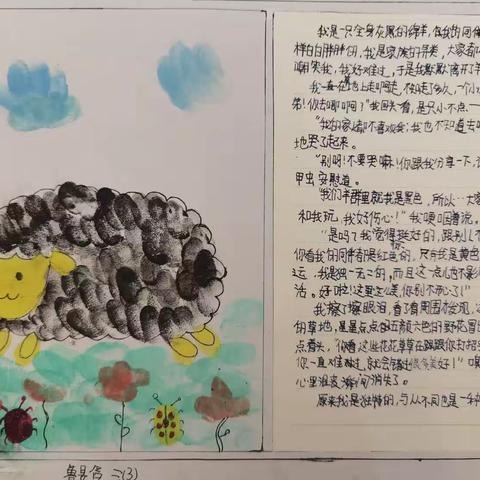 我是一只全身灰黑的绵羊,
样白白胖胖的,我是家族的异类,大家都
嘲笑我,我好难过,于是我默默离开了羊
地上走啊走,不知走了多久,一个小
弟!你去哪啊?"我回头一看,是只小不点
"我的家人都不喜欢我,我也不知道去
地哭了起来。
"别呀!不要哭嘛!你跟我分享一下,
甲虫安慰道。
"我们羊群里就我是黑色,所以…大家
和我玩,我好伤心!"我哽咽着说。
"是吗?我觉得挺好的,跟别人不
你看我的同伴都是红色的,只有我是黄色
运,我是独一无二的,而且这一点也不影
活。好啦!这里这么美,你别不开心了!"
我擦了擦眼泪,看了看周围才发现,
的草地,星星点点的五颜六色的野花
点着头,"你看这些花花草草在跟你打招
你一直难过,就会错过很多美好!"
心里难过瞬间消失了。
原来我是独特的,与众不同也是一种
鲁昱含 二(3)